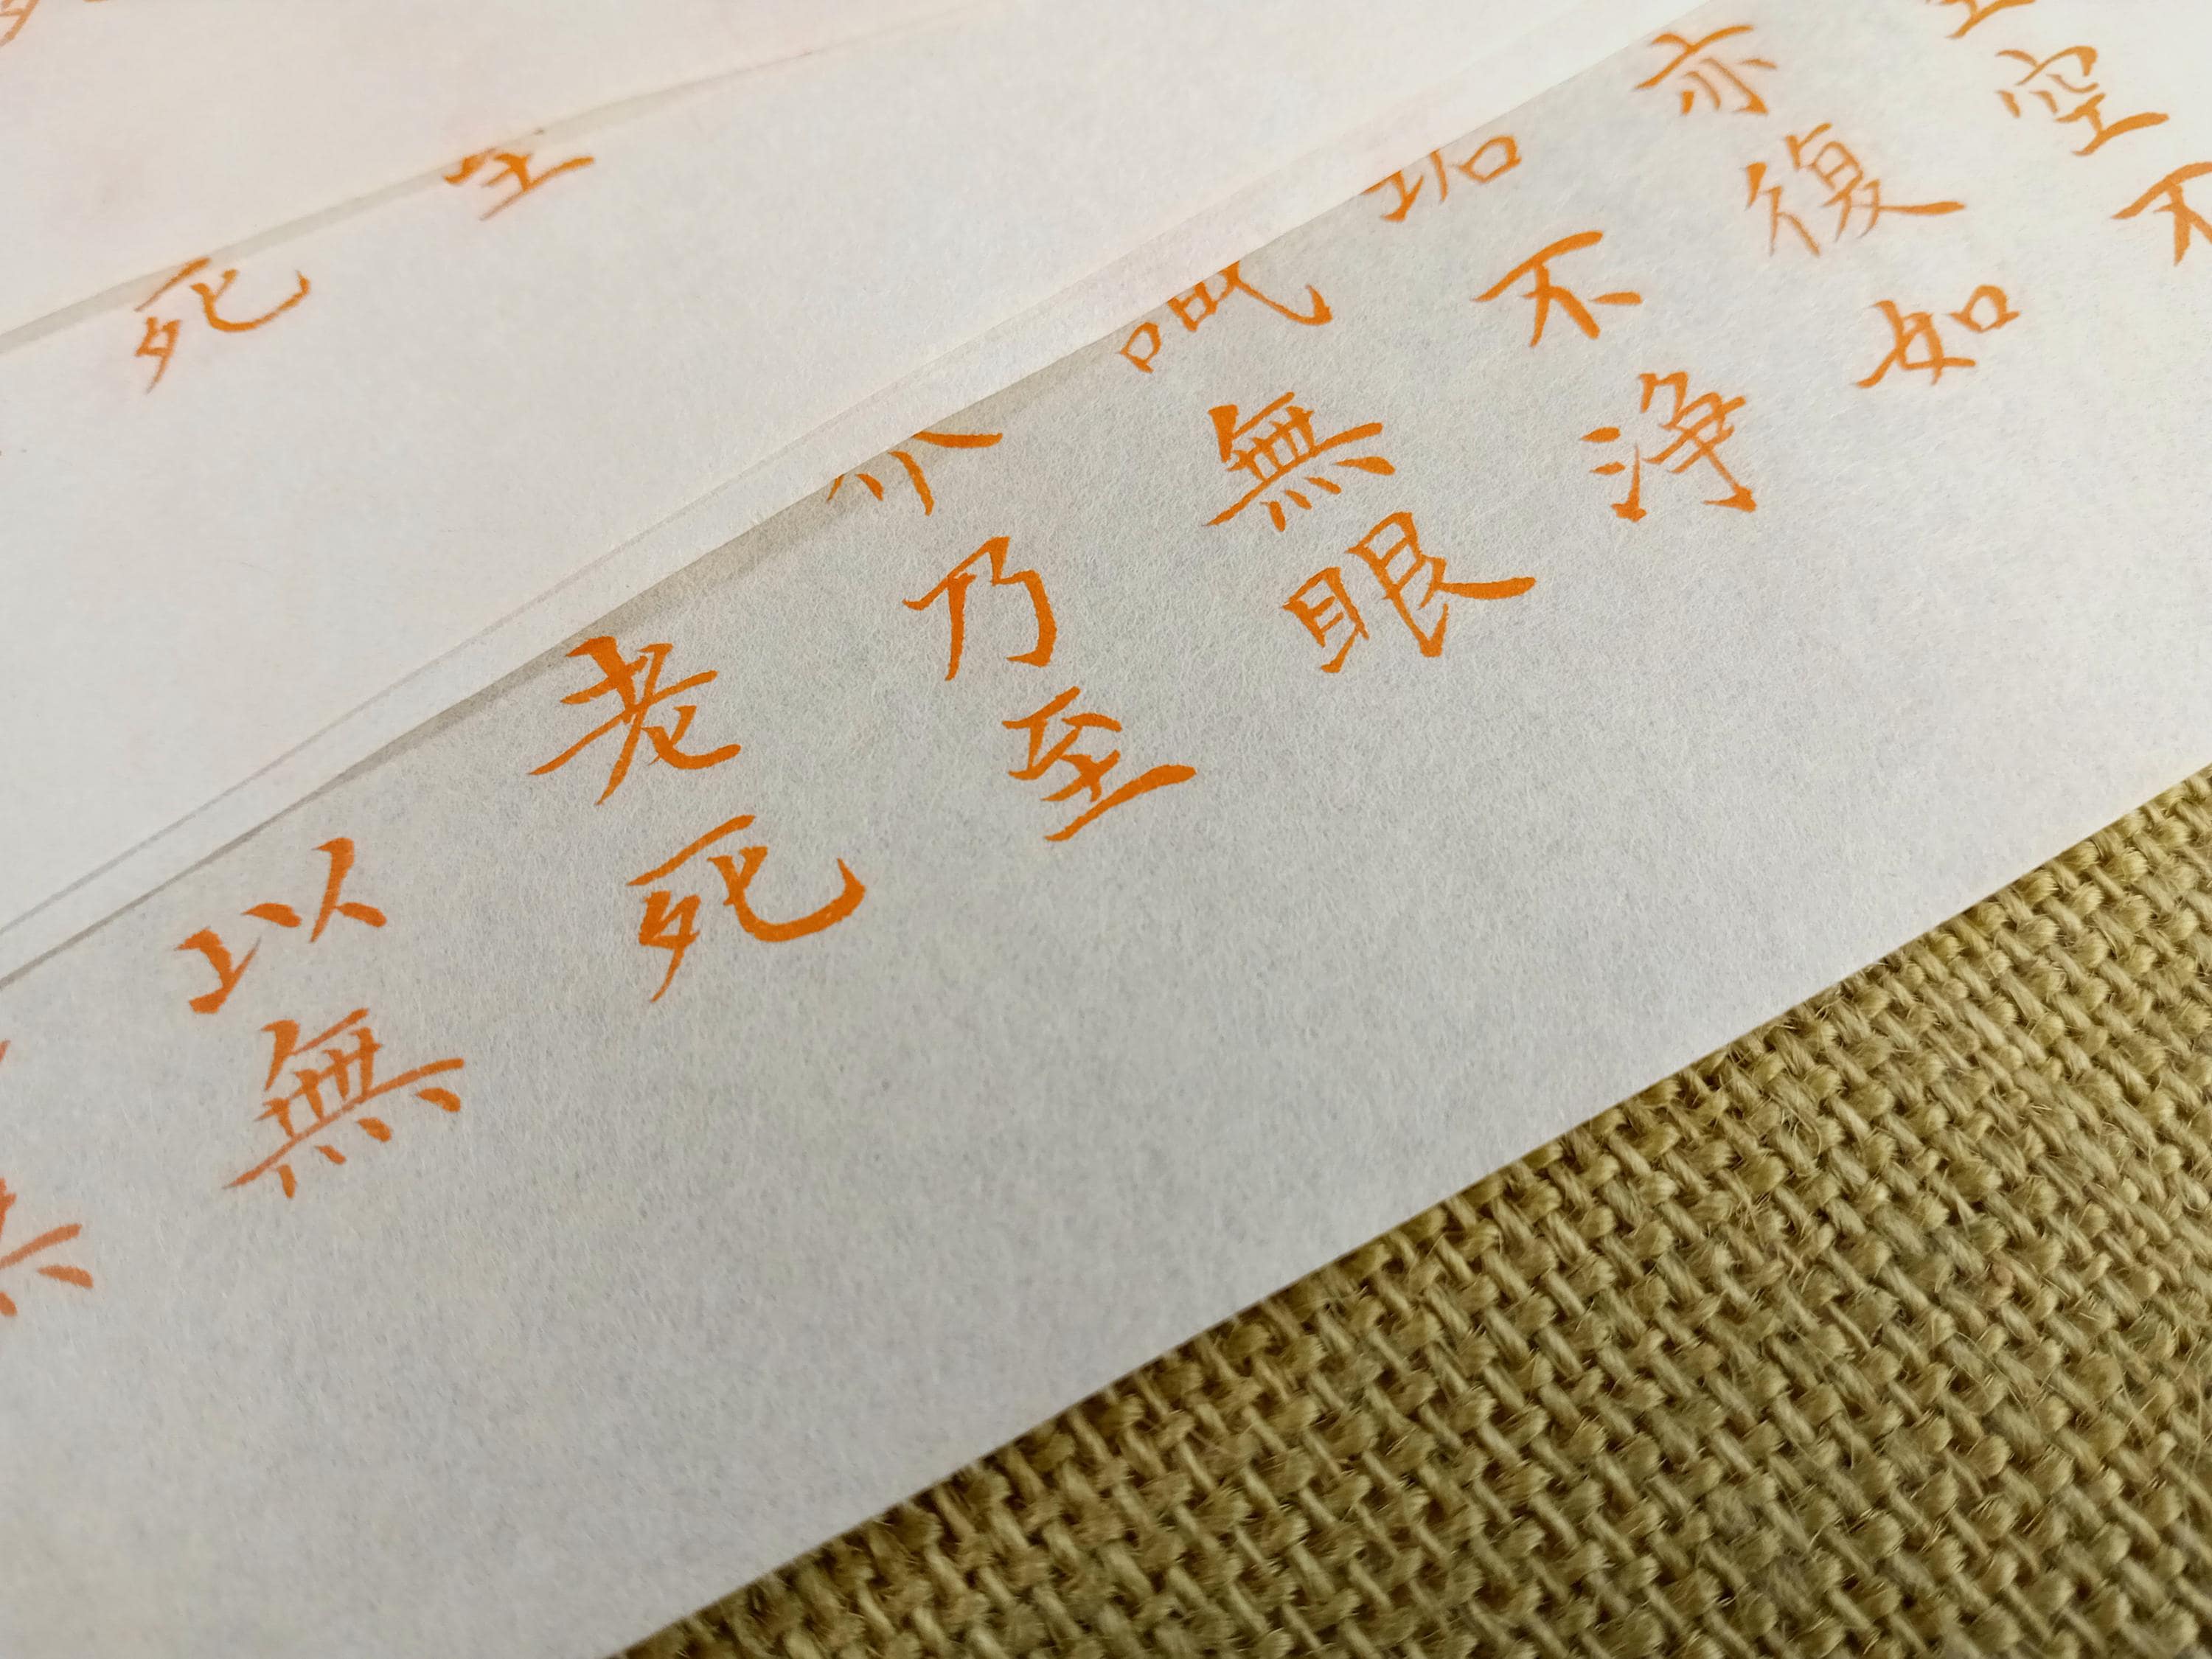 空不
亦復如
垢不浄
識無眼
乃至
老死
以無
死